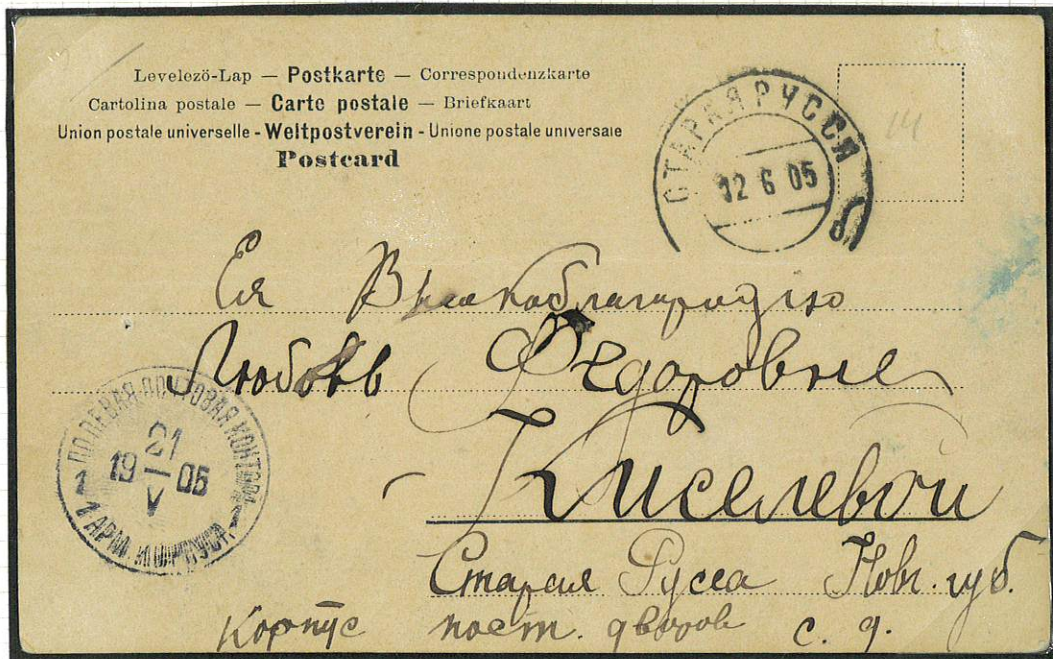 Levelező-Lap — Postkarte — Correspondenzkarte
Cartolina postale — Carte postale — Briefkaart
Union postale universelle - Weltpostverein - Unione postale universale
Postcard
СТАРАЯ РУССА
12 6 05
14
Ея Высокоблагородію
Любовь Федоровне
Киселевой
Старая Русса Новг. губ.
Корпус пост. дворов с. д.
ПОЛЕВАЯ ПОЧТОВАЯ КОНТОРА
21
19 — 05
V
1 1
1 АРМ. КОРПУСА